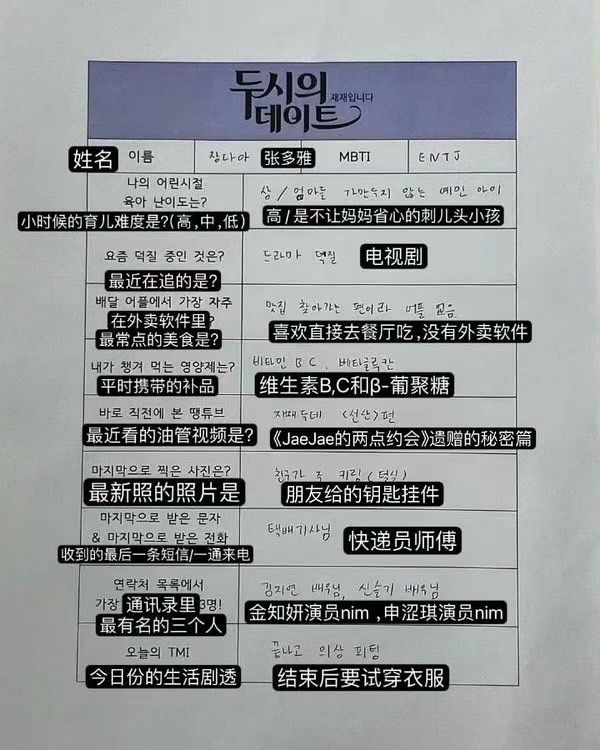 두시의
데이트 재재입니다
姓名 이름 장다아 张多雅 MBTI ENTJ
나의 어린시절
육아 난이도는? 상 / 엄마를 가만두지 않는 예민 아이
小时候的育儿难度是?(高,中,低) 高/是不让妈妈省心的刺儿头小孩
요즘 덕질 중인 것은? 드라마 덕질 电视剧
最近在追的是?
배달 어플에서 가장 자주 맛집 찾아가는 편이라 어플 없음
在外卖软件里?
最常点的美食是? 喜欢直接去餐厅吃,没有外卖软件
내가 챙겨 먹는 영양제는? 비타민 B C , 베타글루칸
平时携带的补品 维生素B,C和β-葡聚糖
바로 직전에 본 땡튜브 재재두데 <선산>편
最近看的油管视频是? 《JaeJae的两点约会》遗赠的秘密篇
마지막으로 찍은 사진은? 친구가 준 키링
最新照的照片是 朋友给的钥匙挂件
마지막으로 받은 문자
& 마지막으로 받은 전화 택배기사님 快递员师傅
收到的最后一条短信/一通来电
연락처 목록에서 김지연 배우님, 신슬기 배우님
가장 通讯录里 3명!
最有名的三个人 金知妍演员nim ,申涩琪演员nim
오늘의 TMI 끝나고 의상 피팅
今日份的生活剧透 结束后要试穿衣服